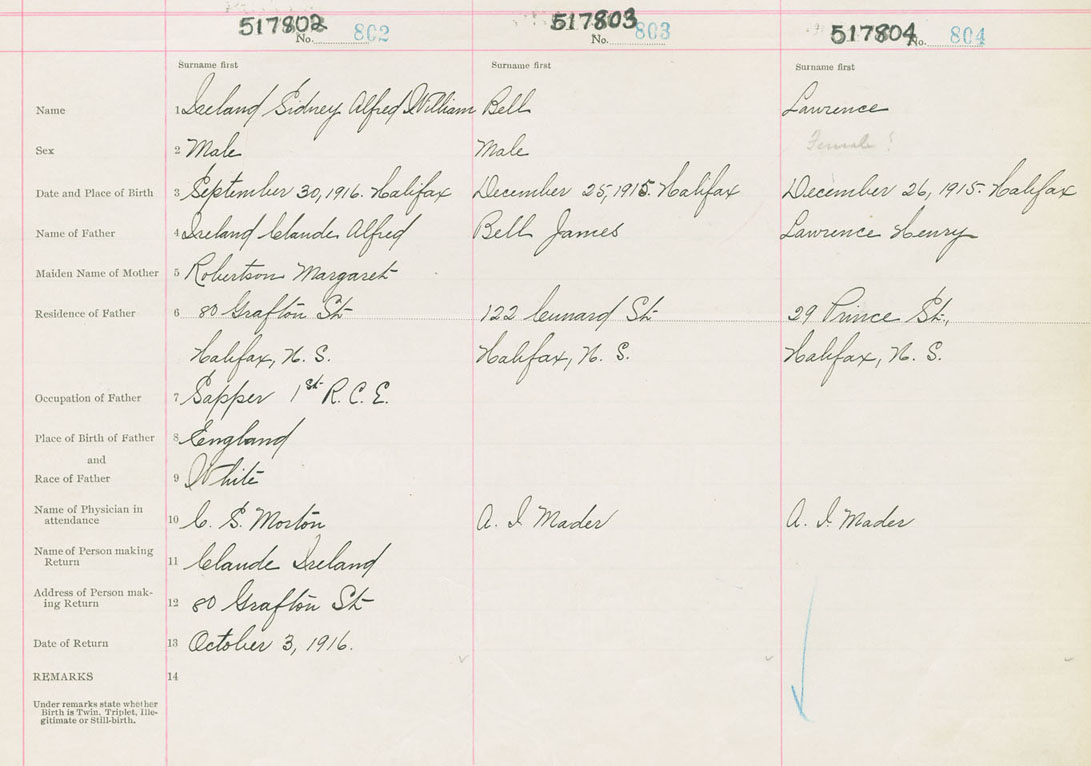 517802 517803 517804
No. 802 No. 803 No. 804
Surname first Surname first Surname first
Name 1 Ireland Sidney Alfred William Bell Lawrence
Sex 2 Male Male Female?
Date and Place of Birth 3 September 30, 1916. Halifax December 25, 1915. Halifax December 26, 1915. Halifax
Name of Father 4 Ireland Claude Alfred Bell James Lawrence Henry
Maiden Name of Mother 5 Robertson Margaret
Residence of Father 6 80 Grafton St 122 Cunard St. 29 Prince St.,
Halifax, N. S. Halifax, N. S. Halifax, N. S.
Occupation of Father 7 Sapper 1st R. C. E.
Place of Birth of Father 8 England
and
Race of Father 9 White
Name of Physician in
attendance 10 C. S. Morton A. I. Mader A. I. Mader
Name of Person making
Return 11 Claude Ireland
Address of Person mak-
ing Return 12 80 Grafton St
Date of Return 13 October 3, 1916.
REMARKS 14
Under remarks state whether
Birth is Twin, Triplet, Ille-
gitimate or Still-birth.